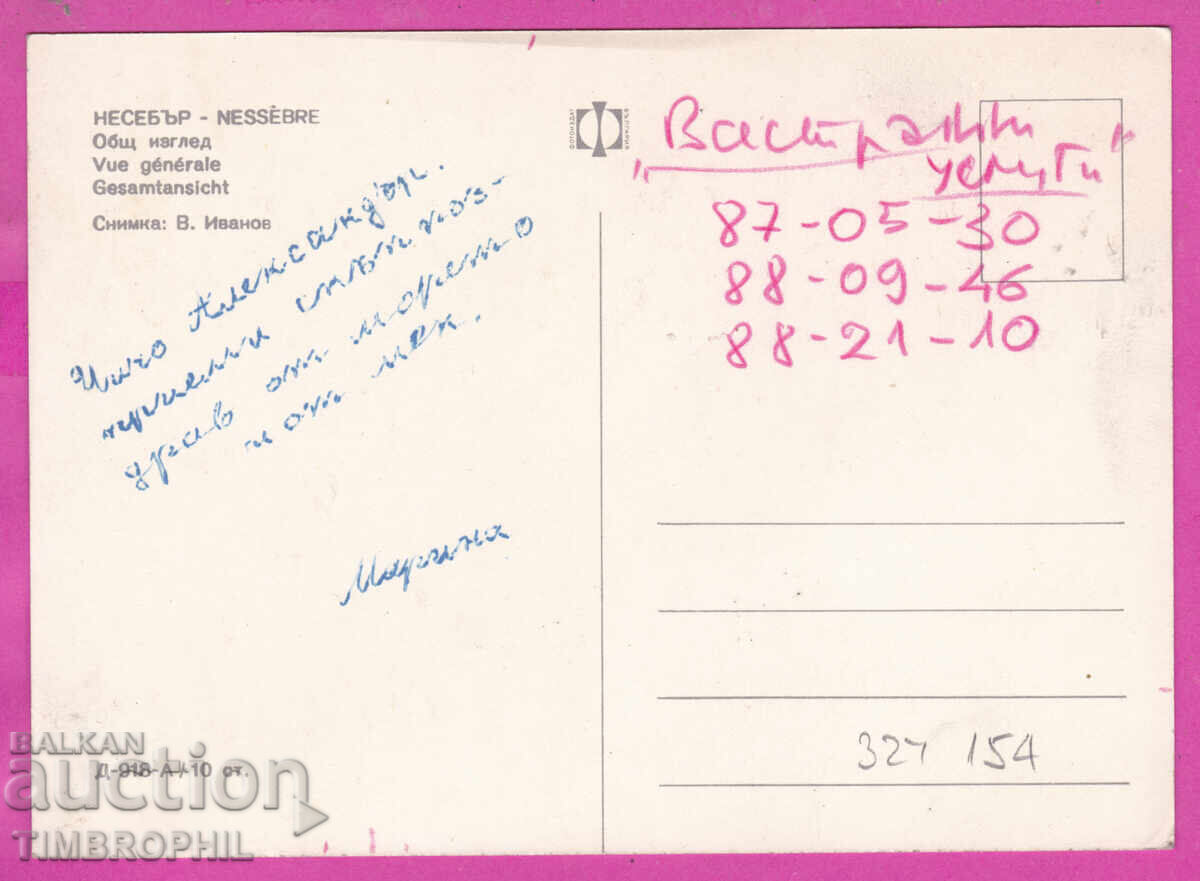 НЕСЕБЪР - NESSÈBRE
Общ изглед
Vue générale
Gesamtansicht
Снимка: В. Иванов
Чичо Александър.
приеми поз-
драв от морето
и от мен.
Марина
ФОТОИЗДАТ
БЪЛГАРИЯ
"Вастрани
услуги"
87-05-30
88-09-46
88-21-10
Д-918-А / 10 ст.
327 154
BALKAN
auction
TIMBROPHIL